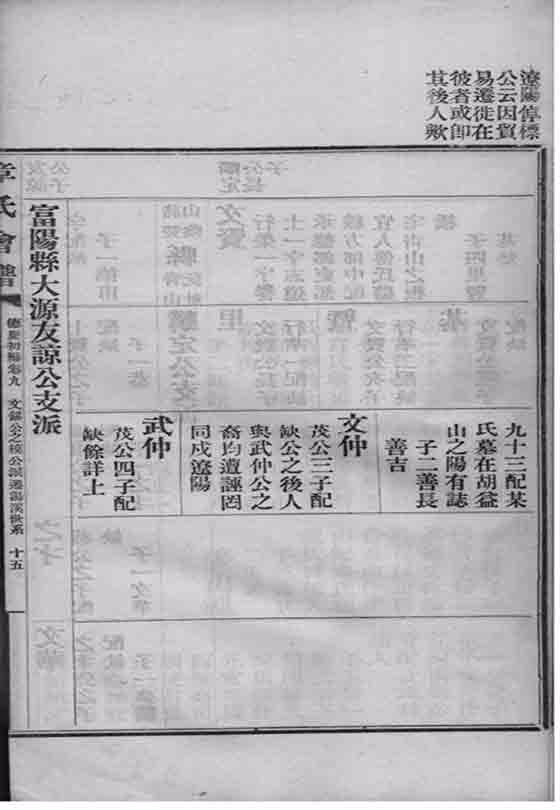 遼陽倳標
公云因貿
易遷徙在
彼者或卽
其後人歟
九十三配某
氏墓在胡益
山之陽有誌
子二善長
善吉
文仲
茂公三子配
缺公之後人
與武仲公之
裔均遭誣罔
同戍遼陽
武仲
茂公四子配
缺餘詳上
富陽縣大源友諒公支派
章氏會譜
德慶初編卷九
十五